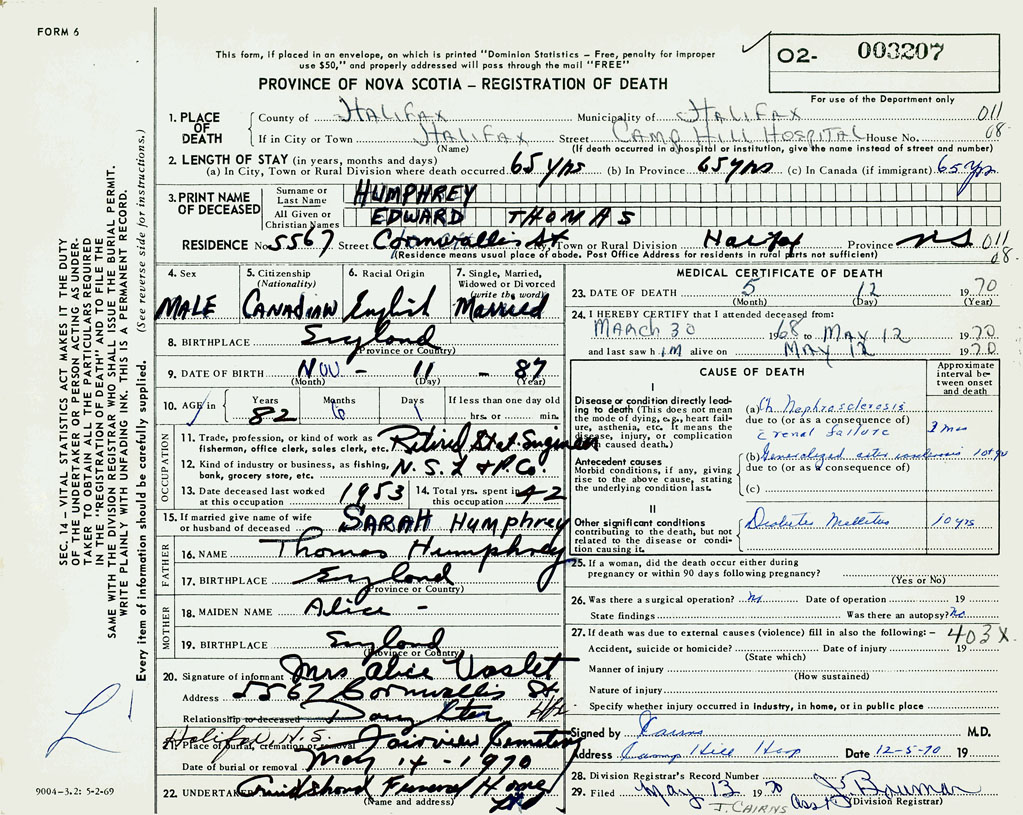 FORM 6
This form, if placed in an envelope, on which is printed "Dominion Statistics – Free, penalty for improper
use $50," and properly addressed will pass through the mail "FREE"
PROVINCE OF NOVA SCOTIA – REGISTRATION OF DEATH
02- 003207
For use of the Department only
1. PLACE OF DEATH
County of HALIFAX Municipality of HALIFAX 011
If in City or Town HALIFAX Street CAMP HILL HOSPITAL House No. 08
(Name) (If death occurred in a hospital or institution, give the name instead of street and number)
2. LENGTH OF STAY (in years, months and days)
(a) In City, Town or Rural Division where death occurred 65 yrs (b) In Province 65 yrs (c) In Canada (if immigrant) 65 yrs
3. PRINT NAME OF DECEASED
Surname or Last Name HUMPHREY
All Given or Christian Names EDWARD THOMAS
RESIDENCE No. 5567 Street Cornwallis St City, Town or Rural Division Halifax Province NS 011
(Residence means usual place of abode. Post Office Address for residents in rural parts not sufficient) 08
4. Sex MALE
5. Citizenship (Nationality) CANADIAN
6. Racial Origin English
7. Single, Married, Widowed or Divorced (write the word) Married
8. BIRTHPLACE England
(Province or Country)
9. DATE OF BIRTH NOV - 11 - 87
(Month) (Day) (Year)
10. AGE in Years 82 Months 6 Days 1 If less than one day old hrs. or min.
OCCUPATION
11. Trade, profession, or kind of work as fisherman, office clerk, sales clerk, etc. Retired Stat. Engineer
12. Kind of industry or business, as fishing, bank, grocery store, etc. N.S. L & P. Co.
13. Date deceased last worked at this occupation 1953 14. Total yrs. spent in this occupation 42
15. If married give name of wife or husband of deceased SARAH Humphrey
FATHER
16. NAME Thomas Humphrey
17. BIRTHPLACE England
(Province or Country)
MOTHER
18. MAIDEN NAME Alice -
19. BIRTHPLACE England
(Province or Country)
20. Signature of informant Mrs Alice
Address 5567 Cornwallis St Hfx
Relationship to deceased Daughter
Halifax, N.S.
21. Place of burial, cremation or removal Fairview Cemetery
Date of burial or removal May 14 - 1970
22. UNDERTAKER Funeral Home
(Name and address)
MEDICAL CERTIFICATE OF DEATH
23. DATE OF DEATH 5 12 1970
(Month) (Day) (Year)
24. I HEREBY CERTIFY that I attended deceased from:
MARCH 30 1968 to MAY 12 1970
and last saw him alive on MAY 12 1970
CAUSE OF DEATH
Approximate interval between onset and death
I
Disease or condition directly leading to death (This does not mean the mode of dying, e.g., heart failure, asthenia, etc. It means the disease, injury, or complication which caused death.)
(a) Ch Nephrosclerosis
due to (or as a consequence of)
renal failure
Antecedent causes
Morbid conditions, if any, giving rise to the above cause, stating the underlying condition last.
(b) Generalized
due to (or as a consequence of)
(c)
II
Other significant conditions contributing to the death, but not related to the disease or condition causing it.
Diabetes Mellitus 10 yrs
25. If a woman, did the death occur either during pregnancy or within 90 days following pregnancy?
(Yes or No)
26. Was there a surgical operation? No Date of operation 19
State findings Was there an autopsy? No
27. If death was due to external causes (violence) fill in also the following: – 403X
Accident, suicide or homicide? Date of injury 19
(State which)
Manner of injury
(How sustained)
Nature of injury
Specify whether injury occurred in industry, in home, or in public place
Signed by Cairns M.D.
Address Camp Hill Hosp Date 12-5-70 19
28. Division Registrar's Record Number
29. Filed May 13 1970 Asst J. Bauman
(Division Registrar)
J. CAIRNS
SEC. 14 – VITAL STATISTICS ACT MAKES IT THE DUTY
OF THE UNDERTAKER OR PERSON ACTING AS UNDER-
TAKER TO OBTAIN ALL THE PARTICULARS REQUIRED
IN THE "REGISTRATION OF DEATH" AND TO FILE THE
SAME WITH THE DIVISION REGISTRAR WHO SHALL ISSUE THE BURIAL PERMIT.
WRITE PLAINLY WITH UNFADING INK. THIS IS A PERMANENT RECORD.
Every item of information should be carefully supplied. (See reverse side for instructions.)
9004-3.2: 5-2-69